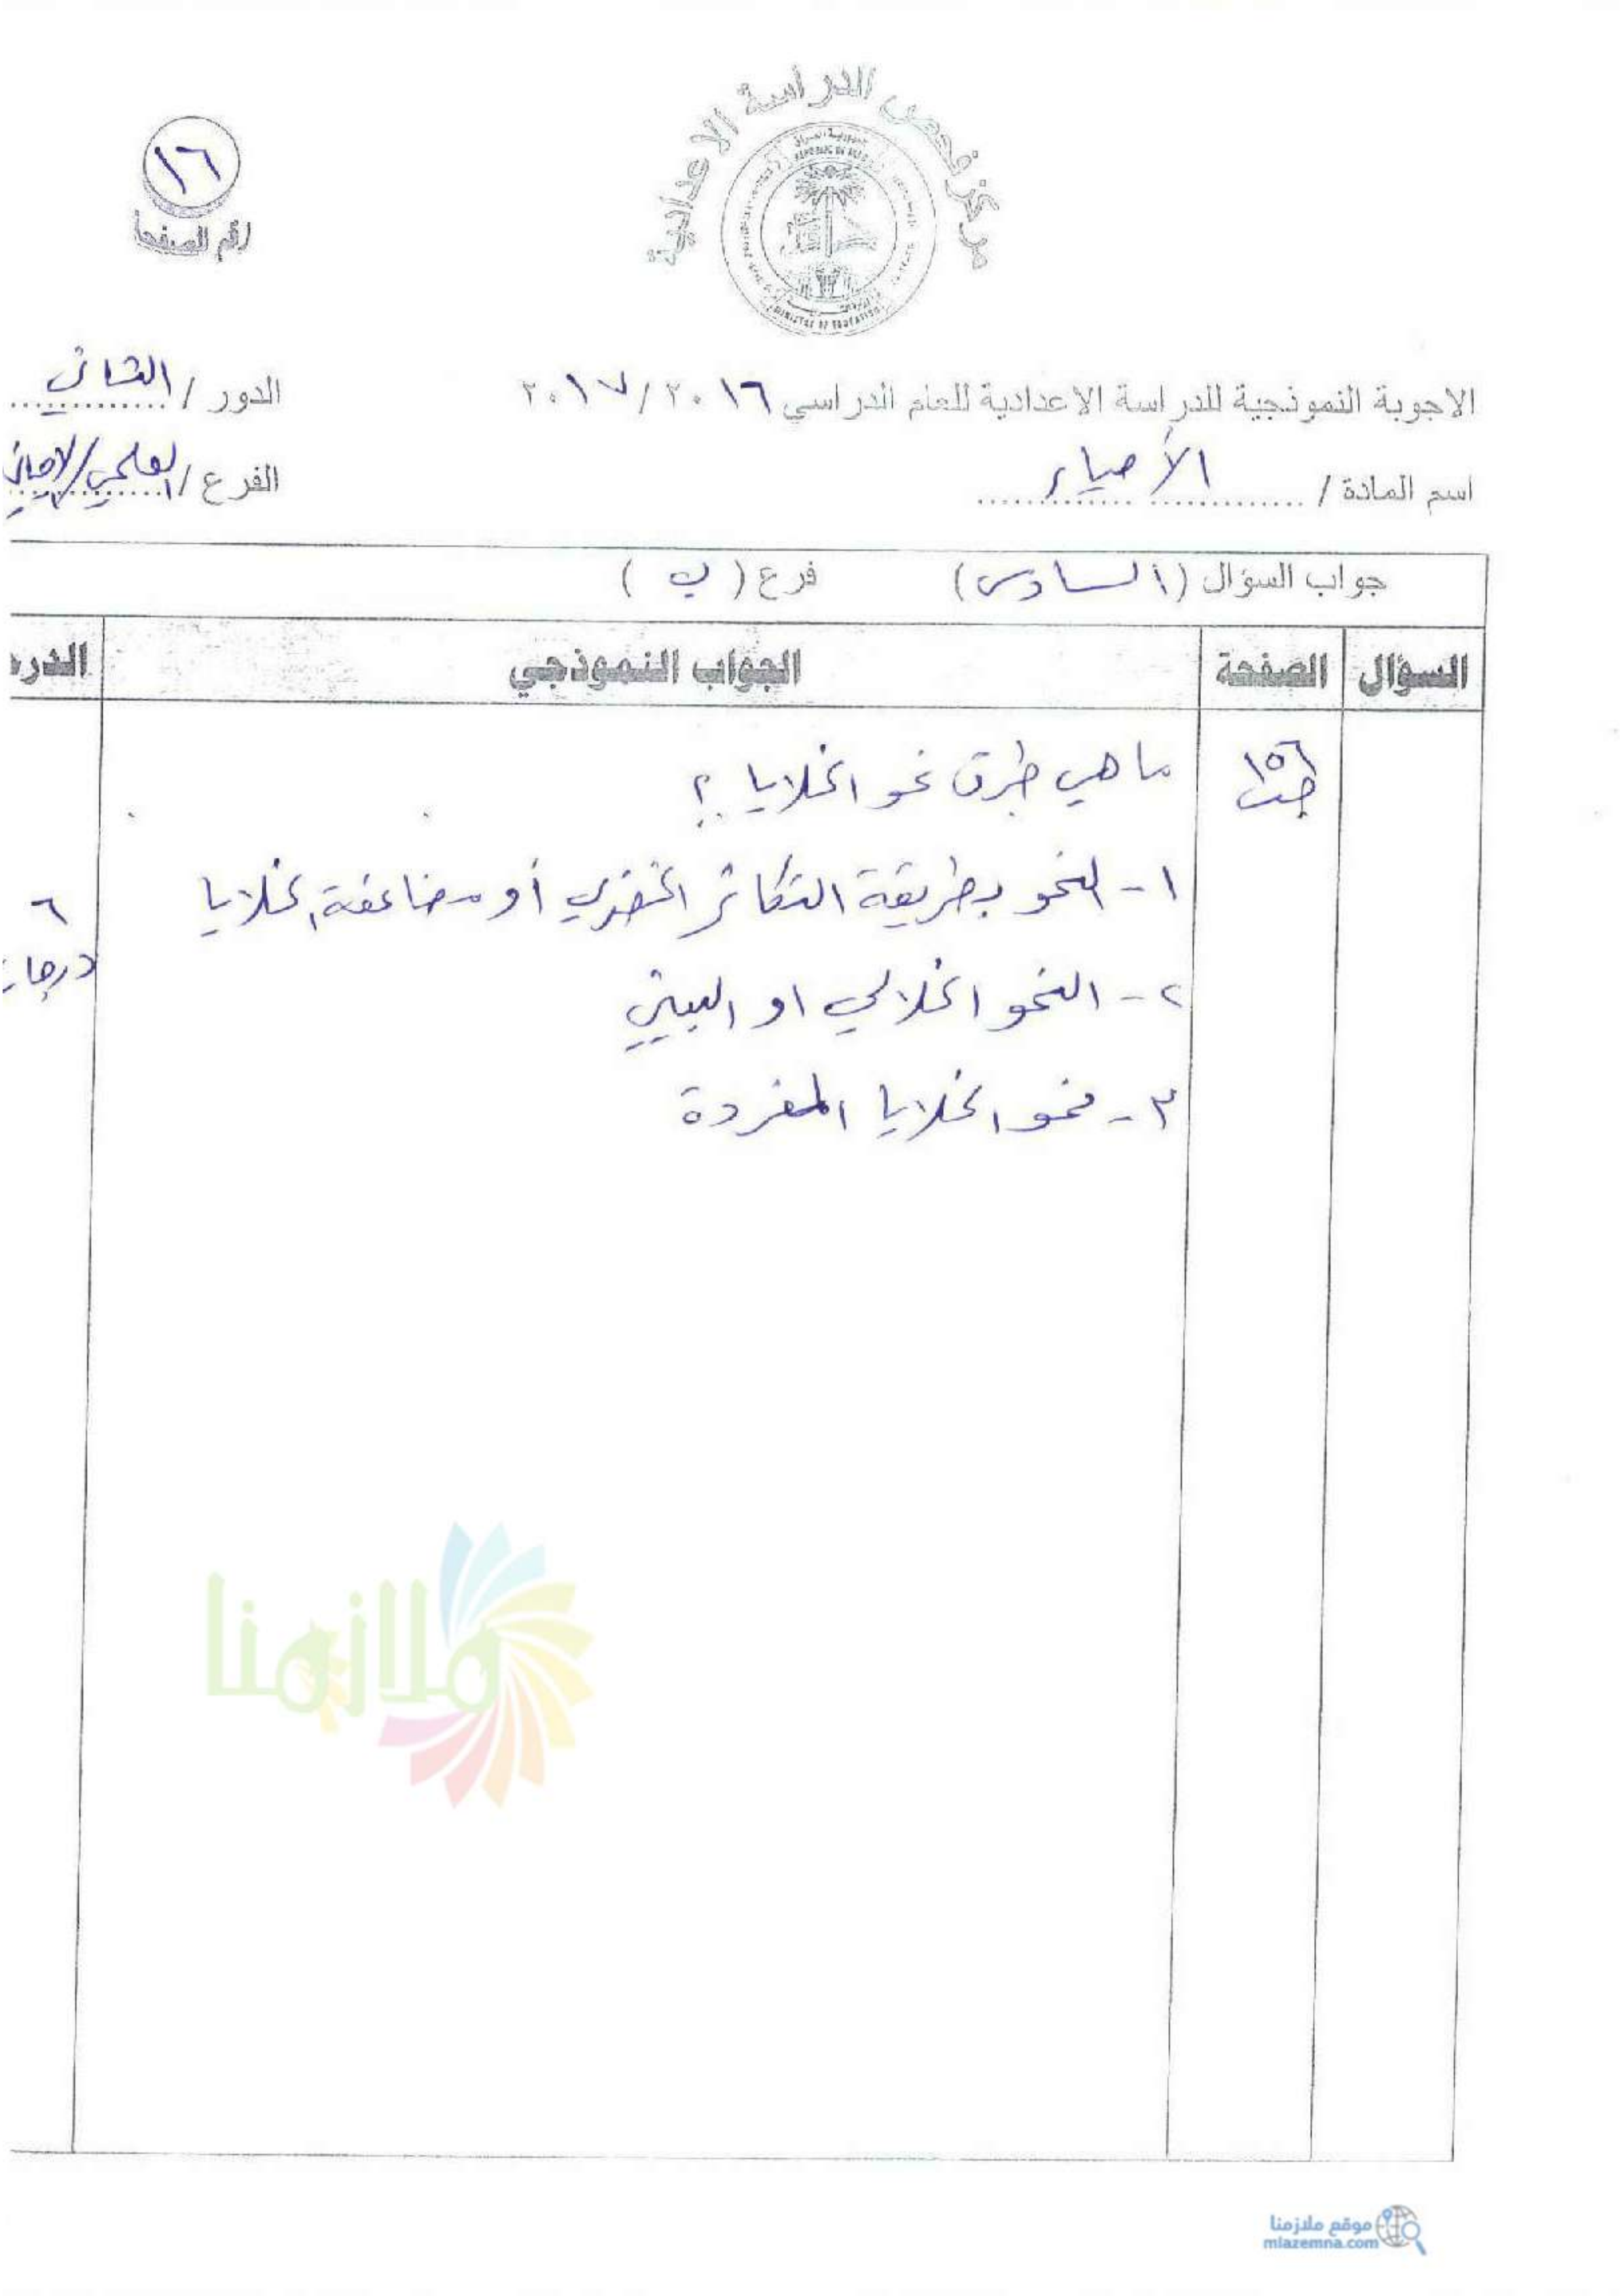 مركز فحص الدراسة الاعدادية
١٦
رقم الصفحة
الاجوبة النموذجية للدراسة الاعدادية للعام الدراسي ٢٠١٦ / ٢٠١٧
الدور / الثاني
اسم المادة / الأحياء
الفرع / العلمي/الاحيائي
جواب السؤال (السادس) فرع (ب)
السؤال الصفحة الجواب النموذجي الدرجة
١٥٦ ما هي طرق نمو الخلايا ؟
١- النمو بطريقة التكاثر الخضري أو مضاعفة الخلايا
٦
درجات
٢- النمو الخلالي او البيني
٣- نمو الخلايا المفردة
ملازمنا
موقع ملازمنا
mlazemna.com